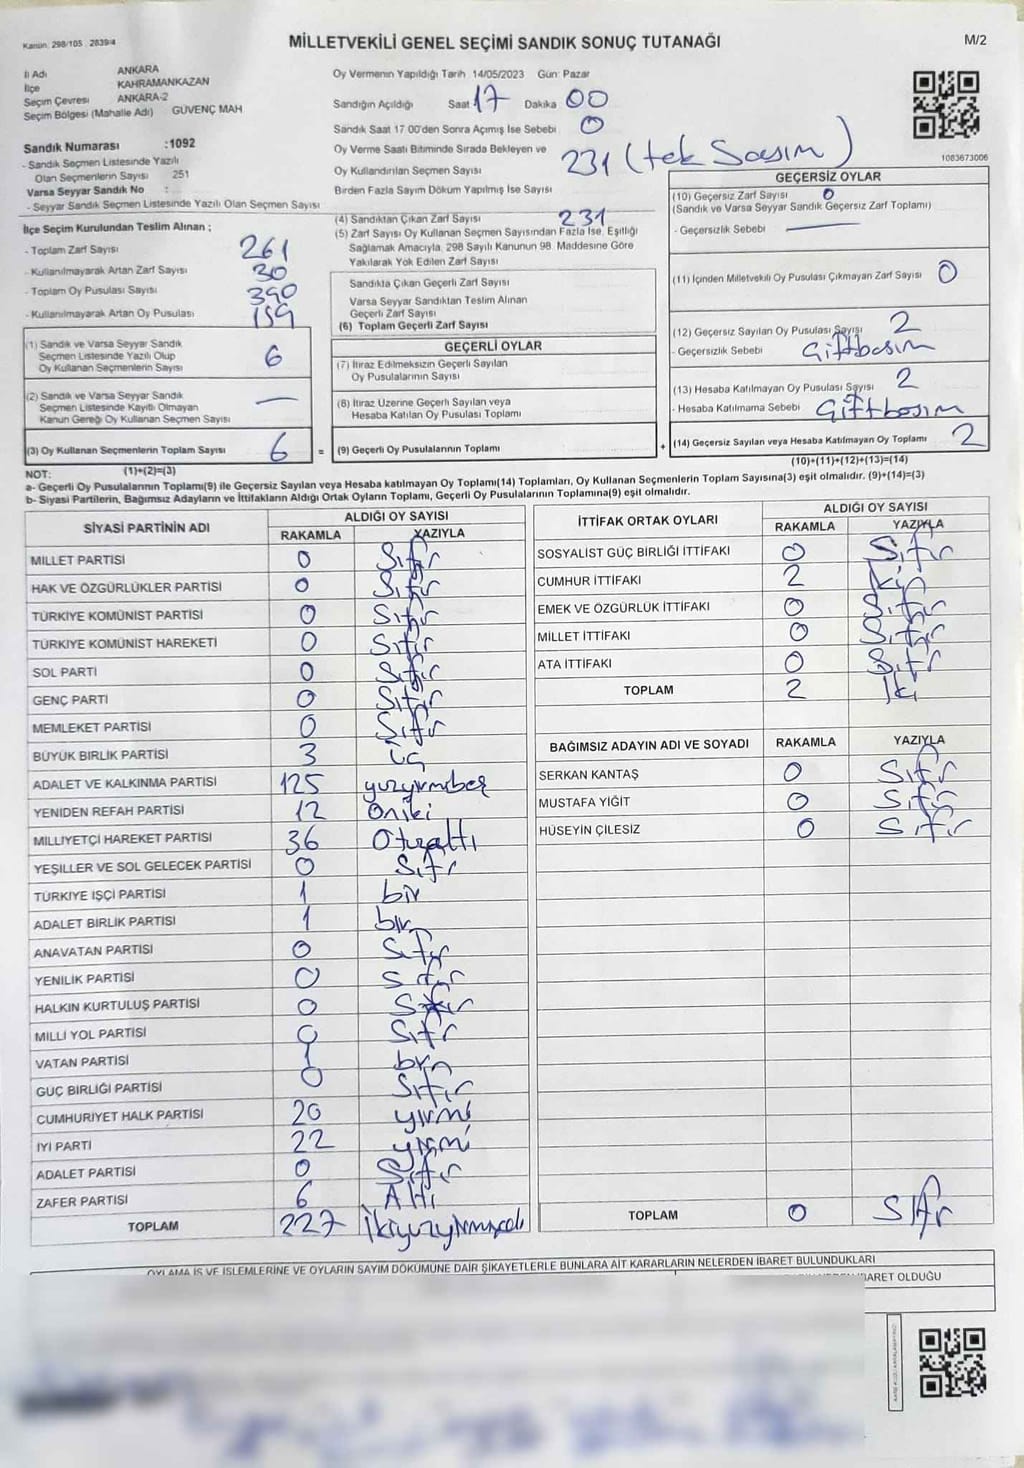 Kanun: 298/105 2839/4
MİLLETVEKİLİ GENEL SEÇİMİ SANDIK SONUÇ TUTANAĞI
M/2
İl Adı ANKARA
İlçe KAHRAMANKAZAN
Seçim Çevresi ANKARA-2
Seçim Bölgesi (Mahalle Adı) GÜVENÇ MAH
Sandık Numarası :1092
- Sandık Seçmen Listesinde Yazılı
Olan Seçmenlerin Sayısı 251
Varsa Seyyar Sandık No :
- Seyyar Sandık Seçmen Listesinde Yazılı Olan Seçmen Sayısı
Oy Vermenin Yapıldığı Tarih 14/05/2023 Gün: Pazar
Sandığın Açıldığı Saat 17 Dakika 00
Sandık Saat 17 00'den Sonra Açımış İse Sebebi 0
Oy Verme Saati Bitiminde Sırada Bekleyen ve
Oy Kullandırılan Seçmen Sayısı 231 (tek Sayım)
Birden Fazla Sayım Döküm Yapılmış İse Sayısı
1083673006
İlçe Seçim Kurulundan Teslim Alınan ;
- Toplam Zarf Sayısı 261
- Kullanılmayarak Artan Zarf Sayısı 30
- Toplam Oy Pusulası Sayısı 390
- Kullanılmayarak Artan Oy Pusulası 159
(1) Sandık ve Varsa Seyyar Sandık
Seçmen Listesinde Yazılı Olup
Oy Kullanan Seçmenlerin Sayısı 6
(2) Sandık ve Varsa Seyyar Sandık
Seçmen Listesinde Kayıtlı Olmayan
Kanun Gereği Oy Kullanan Seçmen Sayısı —
(3) Oy Kullanan Seçmenlerin Toplam Sayısı 6 =
(1)+(2)=(3)
(4) Sandıktan Çıkan Zarf Sayısı 231
(5) Zarf Sayısı Oy Kullanan Seçmen Sayısından Fazla İse, Eşitliği
Sağlamak Amacıyla, 298 Sayılı Kanunun 98. Maddesine Göre
Yakılarak Yok Edilen Zarf Sayısı
Sandıkta Çıkan Geçerli Zarf Sayısı
Varsa Seyyar Sandıktan Teslim Alınan
Geçerli Zarf Sayısı
(6) Toplam Geçerli Zarf Sayısı
GEÇERLİ OYLAR
(7) İtiraz Edilmeksizin Geçerli Sayılan
Oy Pusulalarının Sayısı
(8) İtiraz Üzerine Geçerli Sayılan veya
Hesaba Katılan Oy Pusulası Toplamı
(9) Geçerli Oy Pusulalarının Toplamı +
GEÇERSİZ OYLAR
(10) Geçersiz Zarf Sayısı 0
(Sandık ve Varsa Seyyar Sandık Geçersiz Zarf Toplamı)
- Geçersizlik Sebebi —
(11) İçinden Milletvekili Oy Pusulası Çıkmayan Zarf Sayısı 0
(12) Geçersiz Sayılan Oy Pusulası Sayısı 2
- Geçersizlik Sebebi Çiftbasım
(13) Hesaba Katılmayan Oy Pusulası Sayısı 2
- Hesaba Katılmama Sebebi Çiftbasım
(14) Geçersiz Sayılan veya Hesaba Katılmayan Oy Toplamı 2
(10)+(11)+(12)+(13)=(14)
NOT:
a- Geçerli Oy Pusulalarının Toplamı(9) ile Geçersiz Sayılan veya Hesaba katılmayan Oy Toplamı(14) Toplamları, Oy Kullanan Seçmenlerin Toplam Sayısına(3) eşit olmalıdır. (9)+(14)=(3)
b- Siyasi Partilerin, Bağımsız Adayların ve İttifakların Aldığı Ortak Oyların Toplamı, Geçerli Oy Pusulalarının Toplamına(9) eşit olmalıdır.
SİYASİ PARTİNİN ADI ALDIĞI OY SAYISI
RAKAMLA YAZIYLA
MİLLET PARTİSİ 0 Sıfır
HAK VE ÖZGÜRLÜKLER PARTİSİ 0 Sıfır
TÜRKİYE KOMÜNİST PARTİSİ 0 Sıfır
TÜRKİYE KOMÜNİST HAREKETİ 0 Sıfır
SOL PARTİ 0 Sıfır
GENÇ PARTİ 0 Sıfır
MEMLEKET PARTİSİ 0 Sıfır
BÜYÜK BİRLİK PARTİSİ 3 üç
ADALET VE KALKINMA PARTİSİ 125 yuzyirmibeş
YENİDEN REFAH PARTİSİ 12 Oniki
MİLLİYETÇİ HAREKET PARTİSİ 36 Otuzaltı
YEŞİLLER VE SOL GELECEK PARTİSİ 0 Sıfır
TÜRKİYE İŞÇİ PARTİSİ 1 bir
ADALET BİRLİK PARTİSİ 1 bir
ANAVATAN PARTİSİ 0 Sıfır
YENİLİK PARTİSİ 0 Sıfır
HALKIN KURTULUŞ PARTİSİ 0 Sıfır
MİLLİ YOL PARTİSİ 0 Sıfır
VATAN PARTİSİ 1 bir
GÜÇ BİRLİĞİ PARTİSİ 0 Sıfır
CUMHURİYET HALK PARTİSİ 20 yirmi
İYİ PARTİ 22 yirmi
ADALET PARTİSİ 0 Sıfır
ZAFER PARTİSİ 6 Altı
TOPLAM 227 İkiyuzyirmiyedi
İTTİFAK ORTAK OYLARI ALDIĞI OY SAYISI
RAKAMLA YAZIYLA
SOSYALİST GÜÇ BİRLİĞİ İTTİFAKI 0 Sıfır
CUMHUR İTTİFAKI 2
EMEK VE ÖZGÜRLÜK İTTİFAKI 0 Sıfır
MİLLET İTTİFAKI 0 Sıfır
ATA İTTİFAKI 0 Sıfır
TOPLAM 2 İki
BAĞIMSIZ ADAYIN ADI VE SOYADI RAKAMLA YAZIYLA
SERKAN KANTAŞ 0 Sıfır
MUSTAFA YİĞİT 0 Sıfır
HÜSEYİN ÇİLESİZ 0 Sıfır
TOPLAM 0 Sıfır
OYLAMA İŞ VE İŞLEMLERİNE VE OYLARIN SAYIM DÖKÜMÜNE DAİR ŞİKAYETLERLE BUNLARA AİT KARARLARIN NELERDEN İBARET BULUNDUKLARI
İBARET OLDUĞU